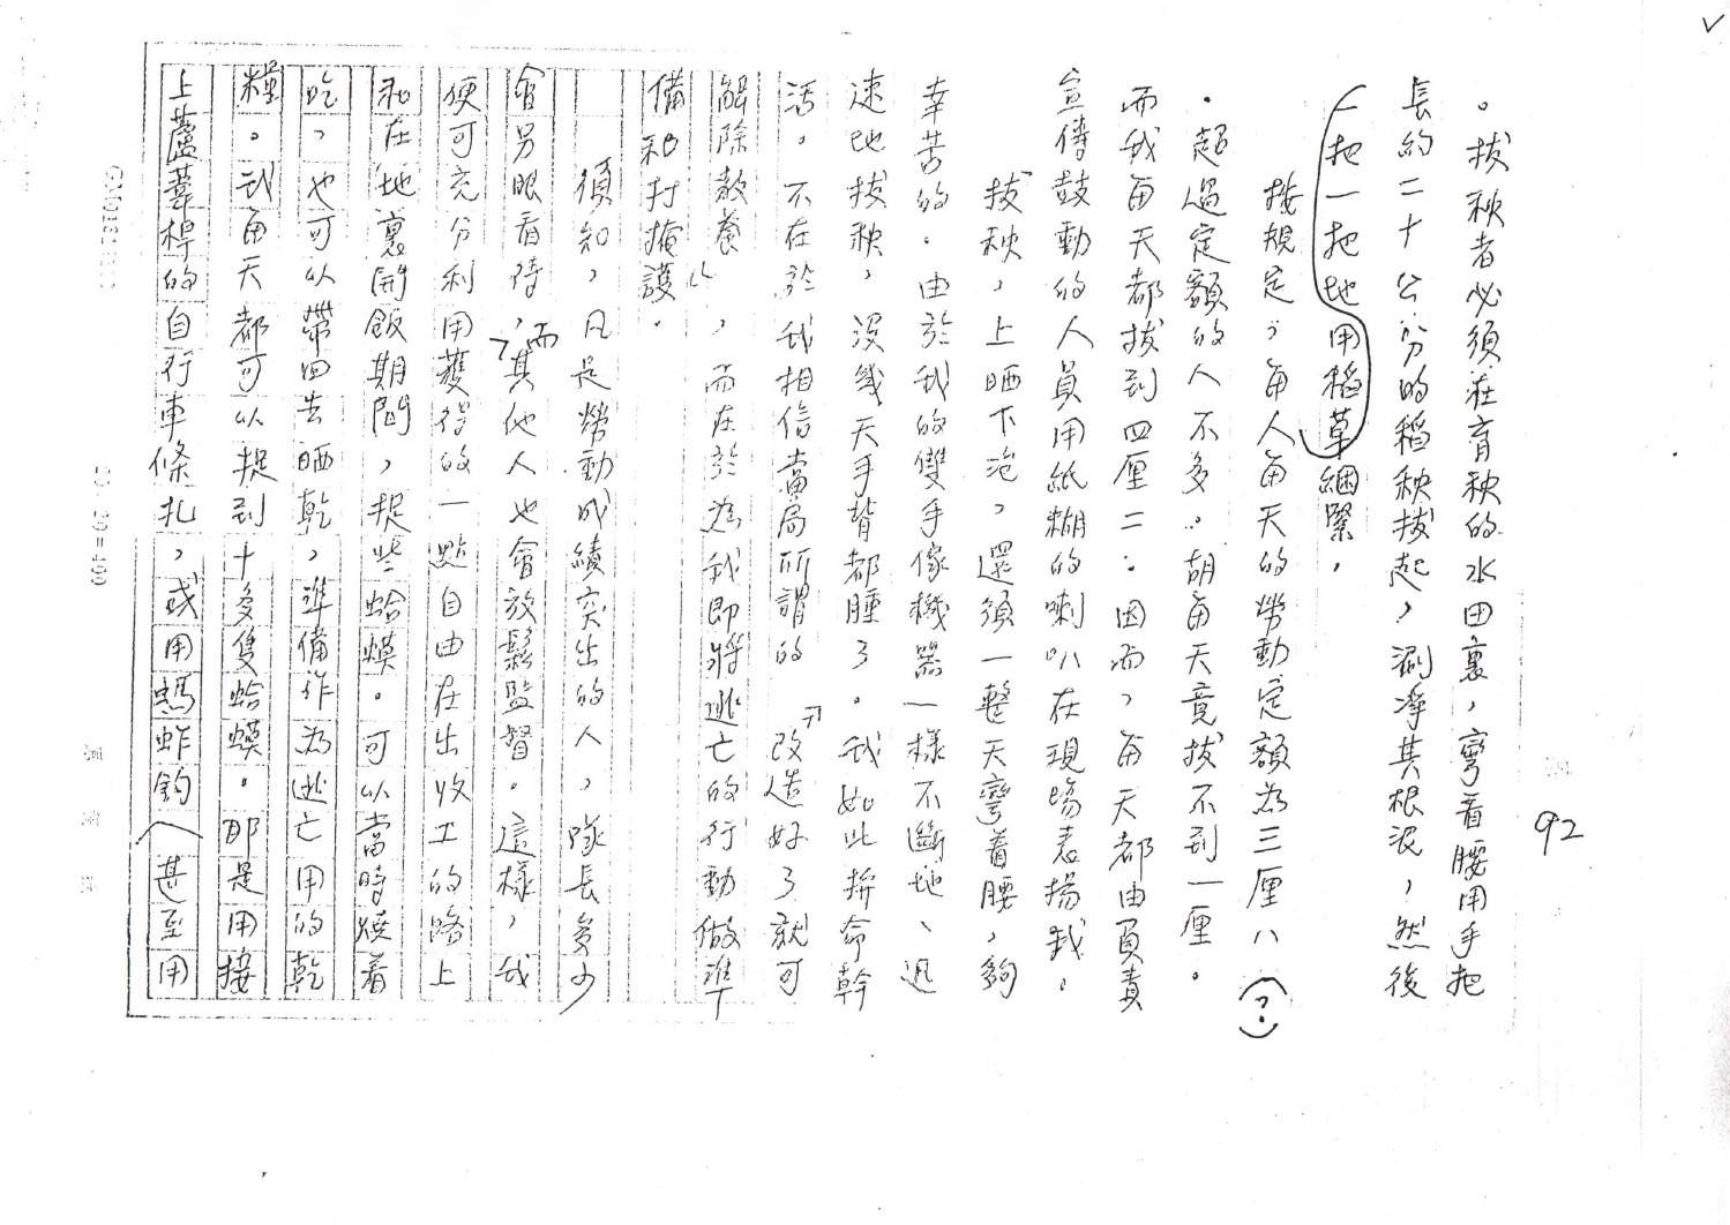 92
。拔秧者必須在育秧的水田裏，彎着腰用手把
長約二十公分的稻秧拔起，涮淨其根泥，然後
一把一把地用稻草綑緊，
按規定，每人每天的勞動定額為三厘八（？）
．超過定額的人不多。胡每天竟拔不到一厘。
而我每天都拔到四厘二．因而，每天都由負責
宣傳鼓動的人員用紙糊的喇叭在現場表揚我。
拔秧，上晒下泡，還須一整天彎着腰，夠
辛苦的．由於我的雙手像機器一樣不斷地、迅
速地拔秧，沒幾天手背都腫了。我如此拚命幹
活，不在於我相信當局所謂的『改造好了就可
解除教養』，而在於為我即將逃亡的行動做準
備和打掩護．
須知，凡是勞動成績突出的人，隊長多少
會另眼看待，而其他人也會放鬆監督。這樣，我
便可充分利用獲得的一點自由在出收工的路上
和在地裏開飯期間，捉些蛤蟆。可以當時燒着
吃，也可以帶回去晒乾，準備作為逃亡用的乾
糧。我每天都可以捉到十多隻蛤蟆．那是用接
上蘆葦桿的自行車條扎，或用螞蚱釣（甚至用
20×20=400